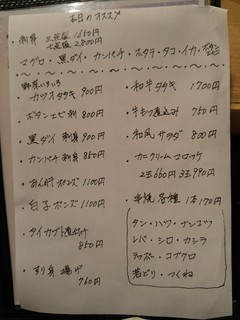 本日のオススメ
・刺身 三点盛 1650円
五点盛 2800円
マグロ・黒ダイ・カンパチ・ホタテ・タコ・イカ・
野菜いろいろ
カツオタタキ 900円
・ボタンエビ刺 800円
・黒ダイ刺身 900円
・カンパチ刺身 850円
・あん肝ポンズ 1100円
・白子ポンズ 1100円
・タイカブト煮付け
850円
・すり身揚げ
760円
・和牛タタキ 1700円
・牛もつ煮込み 750円
・和風サラダ 800円
・カニクリームコロッケ
2ヶ660円 3ヶ990円
・串焼各種 1本170円
タン・ハツ・ナンコツ
レバ・シロ・カシラ
テッポー・コブクロ
若どり・つくね